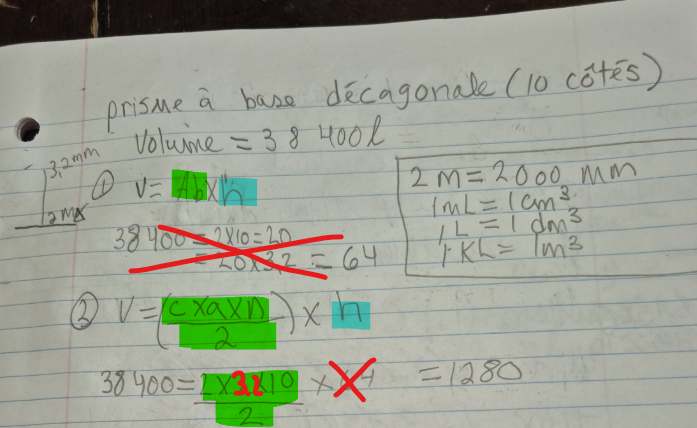 prisme à base décagonale (10 côtés)
Volume = 38 400l
3,2mm
2mm
① V = Ab x h
38400 = 2x10 = 20
= 20 x 3,2 = 64
2 M = 2000 mm
1mL = 1cm³
1L = 1dm³
1KL = 1m³
② V = (c x a x n / 2) x h
38 400 = 2 x 3.2 x 10 / 2 x = 1280